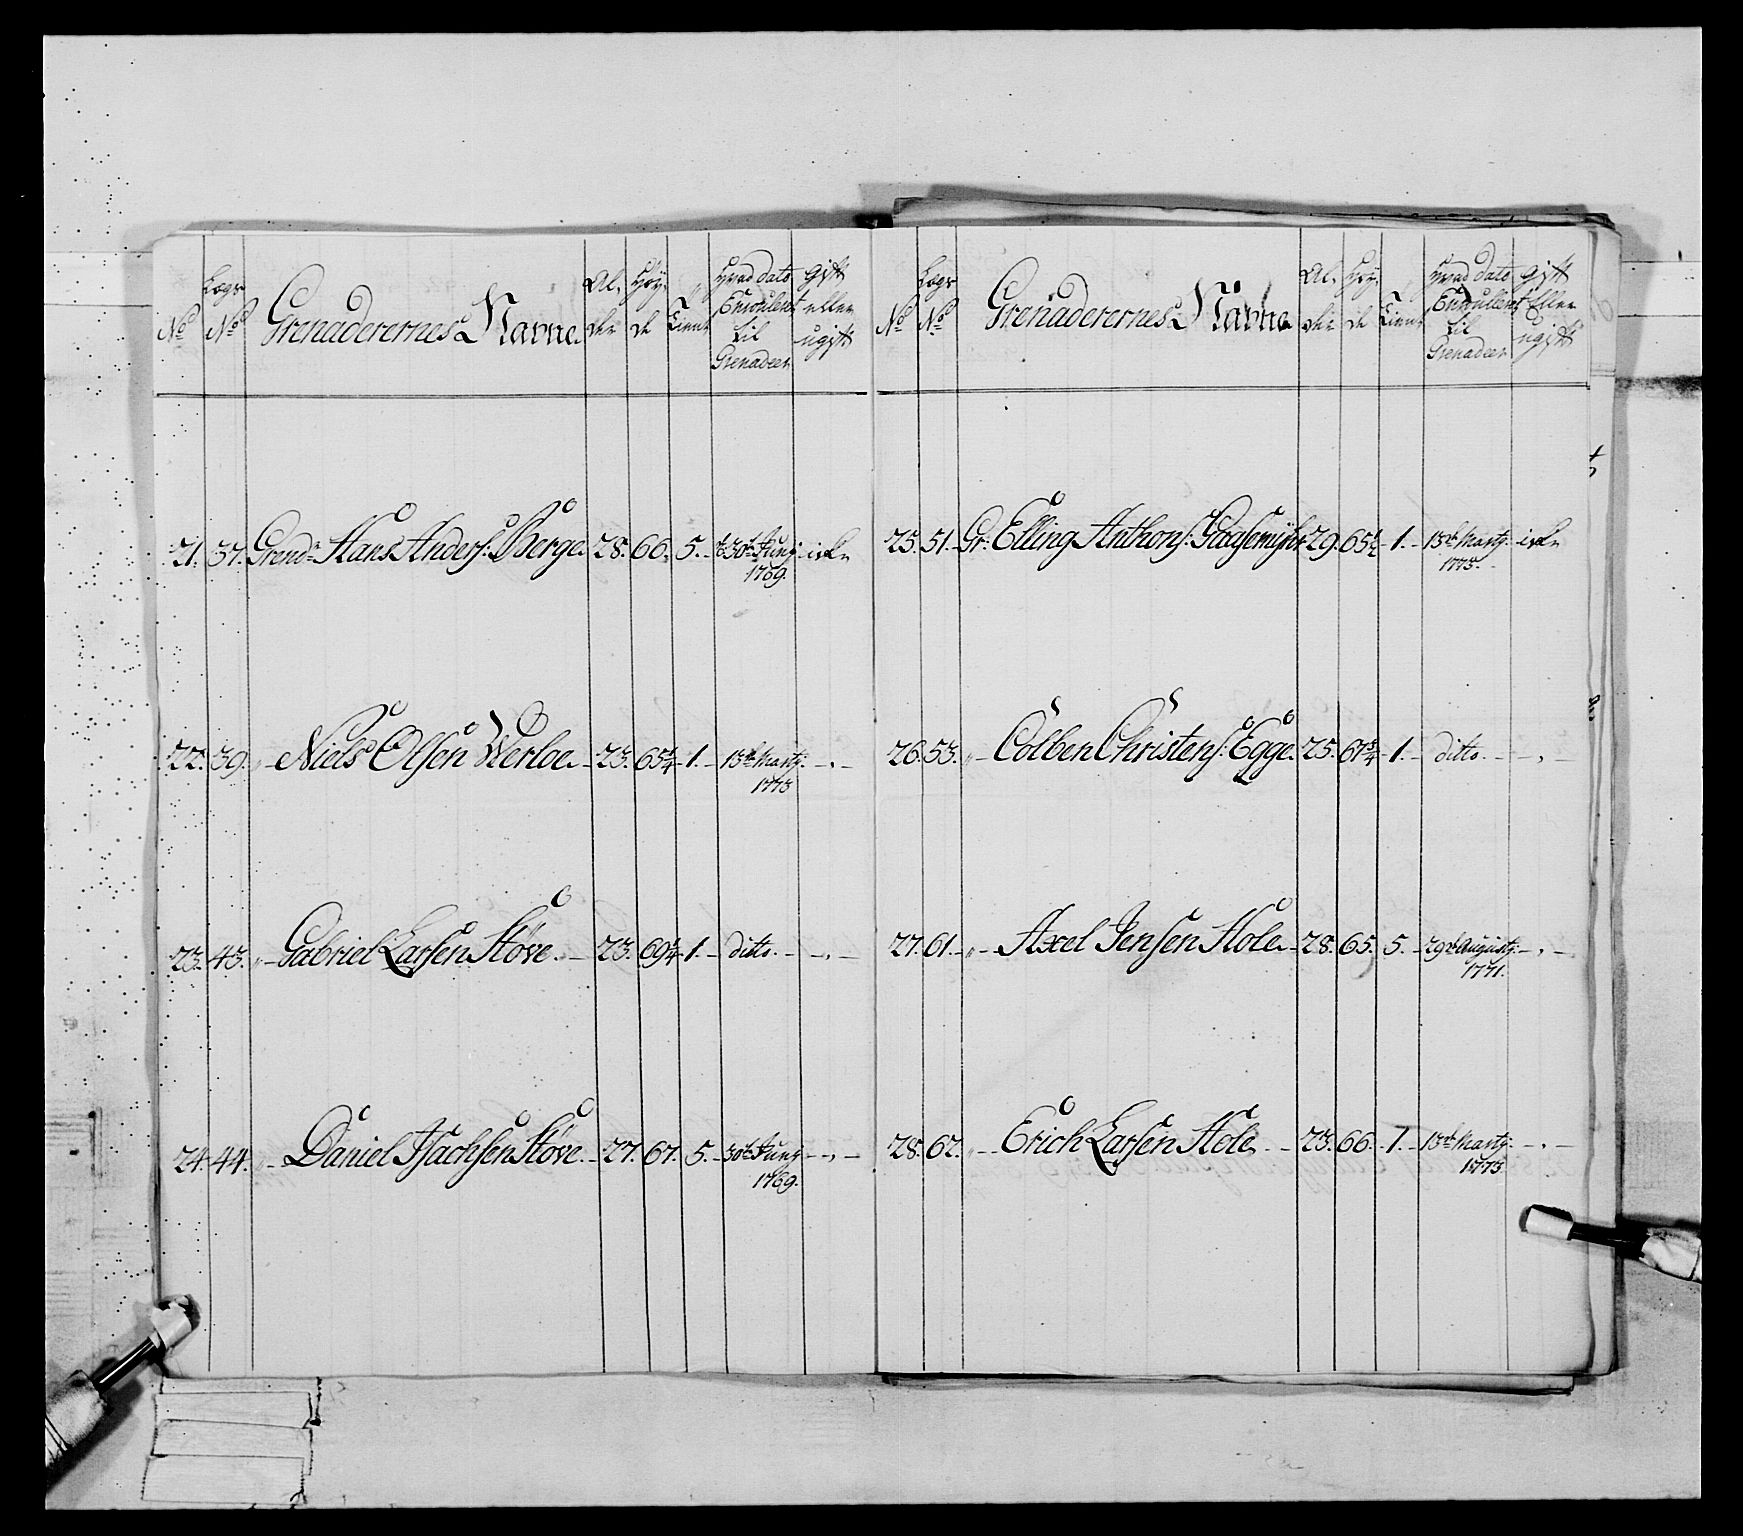 No Lægs No Grenaderernes Navne. Al- der Høy- de Tient Hvad dato Enroulert til Grenadeer gift eller ugift
21. 37. Grendr Hans Anders: Berge. 28. 66. 5. d 30te Junij 1769. icke
22. 39. „ Niels Olsen Werloe. 23. 65¼ 1. 13de Martij 1773 „
23. 43. „ Gabriel Larsen Støve. 23. 69¼ 1. ditto. „
24. 44. „ Daniel Isachsen Støve. 27. 67. 5. 30te Junij 1769. „
No Lægs No Grenaderernes Navne Al- der Høy- de Tient Hvad dato Enroulent til Grenadeer gift Eller ugift
25. 51. Gr: Elling Anthons: 29. 65½ 1. 13de Martij 1773. icke
26. 53. „ Colben Christens: Egge. 25. 67¾ 1. ditto. „
27. 61. „ Axel Jensen Hole. 28. 65. 5. 29de Augustj 1771. „
28. 62. „ Erich Larsen Hole. 23. 66. 1. 13de Martij 1773. „